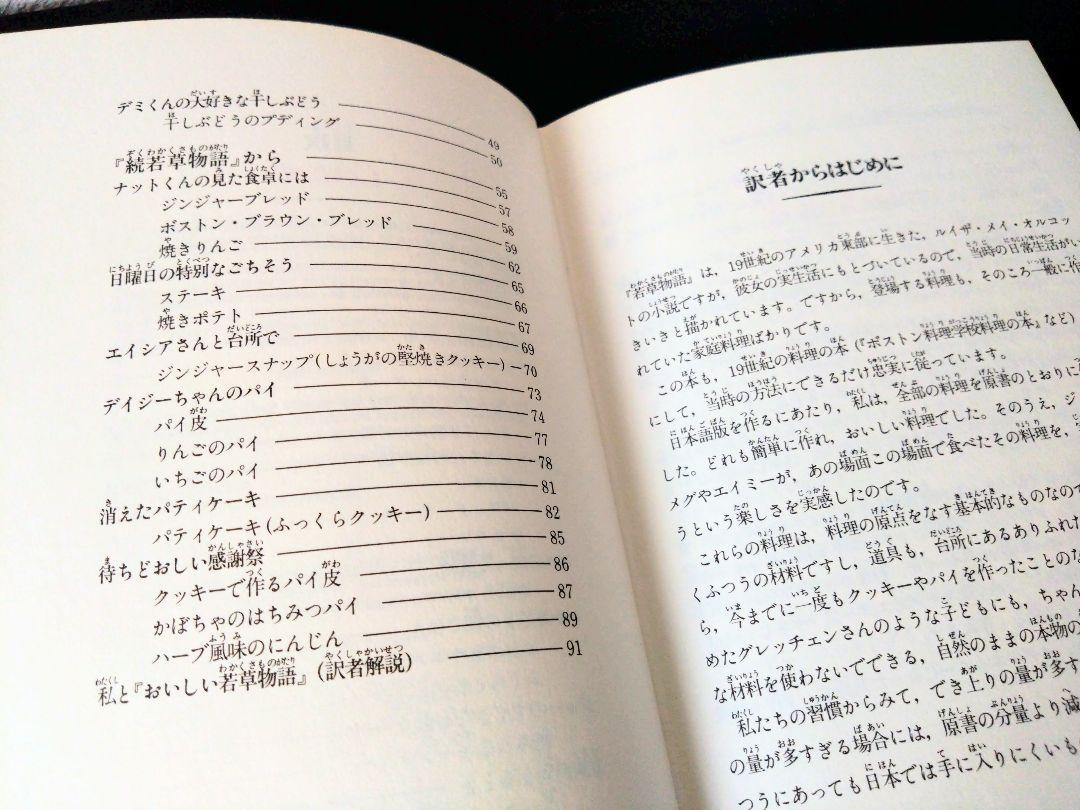 デミくんの大好きな干しぶどう ― 49
干しぶどうのプディング ― 50
『続若草物語』から ― 55
ナットくんの見た食卓には ― 57
ジンジャーブレッド ― 58
ボストン・ブラウン・ブレッド ― 59
焼きりんご ― 62
日曜日の特別なごちそう ― 65
ステーキ ― 66
焼きポテト ― 67
エイシアさんと台所で ― 69
ジンジャースナップ(しょうがの堅焼きクッキー) ― 70
デイジーちゃんのパイ ― 73
パイ皮 ― 74
りんごのパイ ― 77
いちごのパイ ― 78
消えたパティケーキ ― 81
パティケーキ(ふっくらクッキー) ― 82
待ちどおしい感謝祭 ― 85
クッキーで作るパイ皮 ― 86
かぼちゃのはちみつパイ ― 87
ハーブ風味のにんじん ― 89
私と『おいしい若草物語』(訳者解説) ― 91
訳者からはじめに
『若草物語』は，19世紀のアメリカ東部に生きた，ルイザ・メイ・オルコッ
トの小説ですが，彼女の実生活にもとづいているので，当時の日常生活がい
きいきと描かれています。ですから，登場する料理も，そのころ一般に作
れていた家庭料理ばかりです。
この本も，19世紀の料理の本(『ボストン料理学校料理の本』など)
にして，当時の方法にできるだけ忠実に従っています。
日本語版を作るにあたり，私は，全部の料理を原書のとおりに
した。どれも簡単に作れ，おいしい料理でした。そのうえ，ジ
メグやエイミーが，あの場面この場面で食べたその料理を，
うという楽しさを実感したのです。
これらの料理は，料理の原点をなす基本的なものなので
くふつうの材料ですし，道具も，台所にあるありふれた
ら，今までに一度もクッキーやパイを作ったことのな
めたグレッチェンさんのような子どもにも，ちゃん
な材料を使わないでできる，自然のままの本物の
私たちの習慣からみて，でき上りの量が多す
の量が多すぎる場合には，原書の分量より減
つうにあっても日本では手に入りにくいも